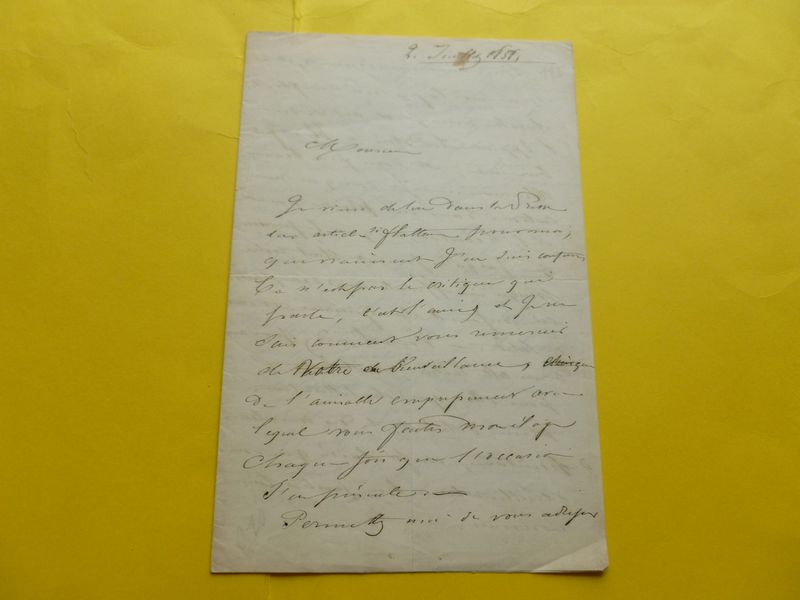 2. Juillet 1851,
Monsieur
Je viens de lire dans la Presse
un article si flatteur pour moi,
que vraiment j'en suis confus
Ce n'est pas le critique qui
parle, c'est l'ami, et je ne
sais comment vous remercier
de votre bienveillance,
de l'aimable empressement avec
lequel vous faites mon éloge
chaque fois que l'occasion
s'en présente
Permettez moi de vous adresser